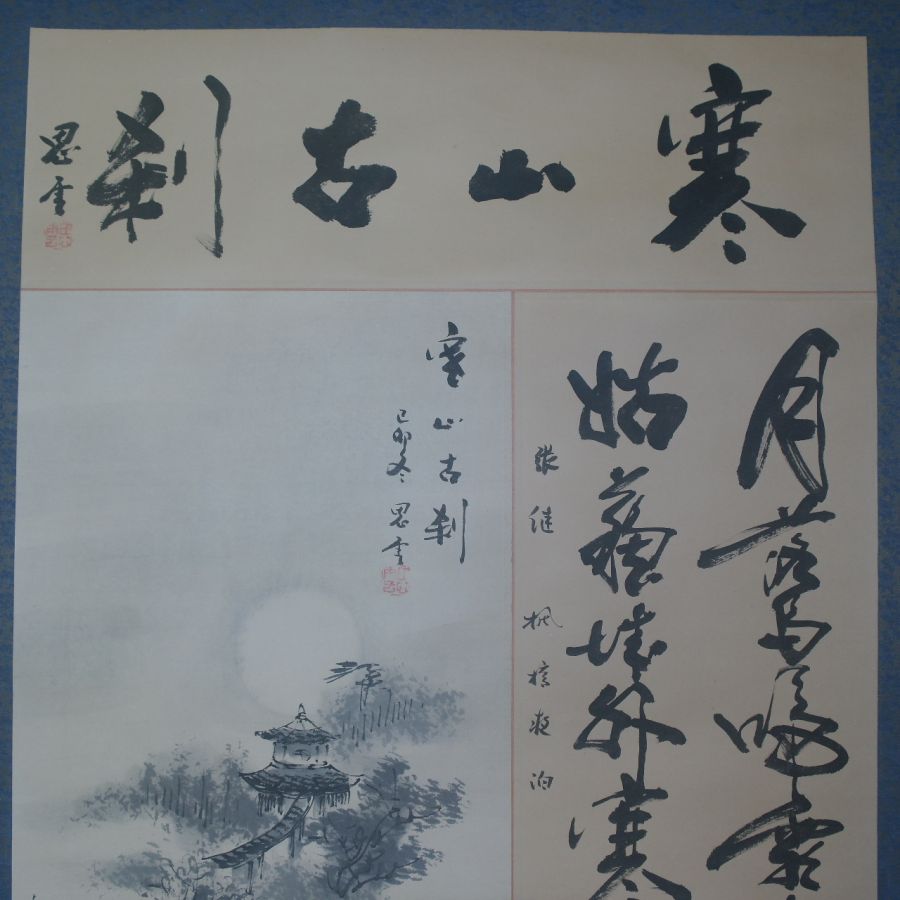 寒山古刹
思雲
月落烏啼霜
姑蘇城外寒
張継 楓橋夜泊
寒山古刹
己卯冬 思雲